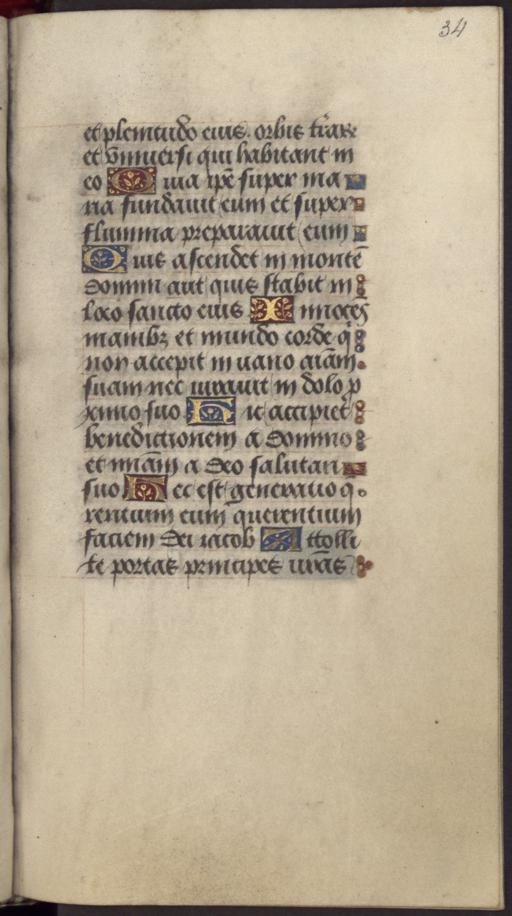 34
et plenitudo eius. orbis t̄rar̄
et vniuersi qui habitant in
eo Quia ip̄e super ma
ria fundauit eum et super
flumina preparauit eum
Quis ascendet in montē
domini aut quis stabit in
loco sancto eius Innocēs
manibꝫ et mundo corde q̄
non accepit in uano aīam
suam nec iurauit in dolo p
ximo suo Hic accipiet
benedictionem a domino
et miām a deo salutari
suo Hec est generatio q̄
rentium eum querentium
faciem dei iacob Attolli
te portas principes urās